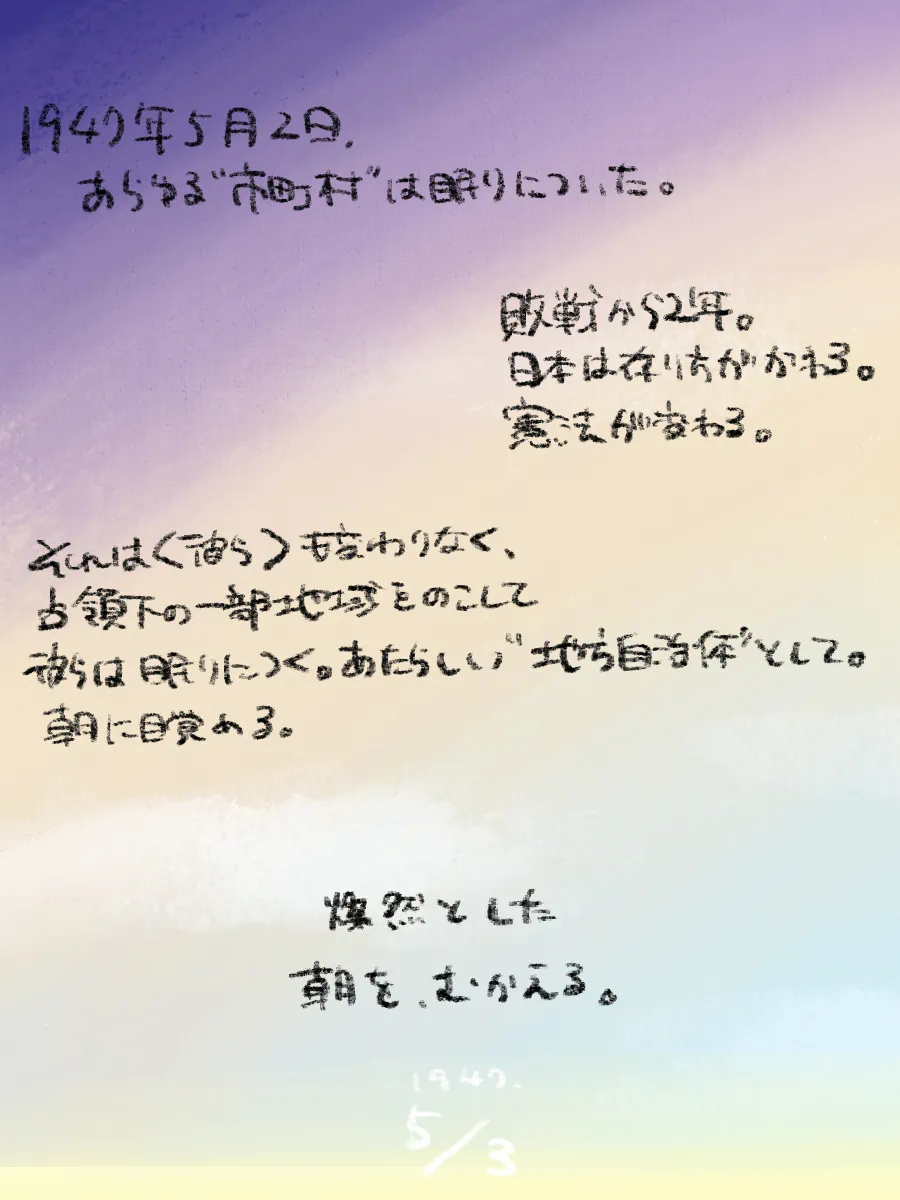 1947年5月2日、
あらゆる"市町村"は眠りについた。
敗戦から2年。
日本は在り方がかわる。
憲法が変わる。
それは〈彼ら〉も変わりなく、
占領下の一部地域をのこして
彼らは眠りにつく。あたらしい"地方自治体"として。
朝に目覚める。
燦然とした
朝を、むかえる。
1947.
5/3